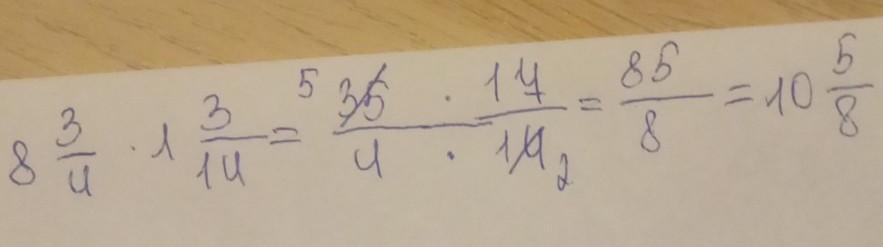 8 3/4 · 1 3/14 = 5 35/4 · 17/14 2 = 85/8 = 10 5/8